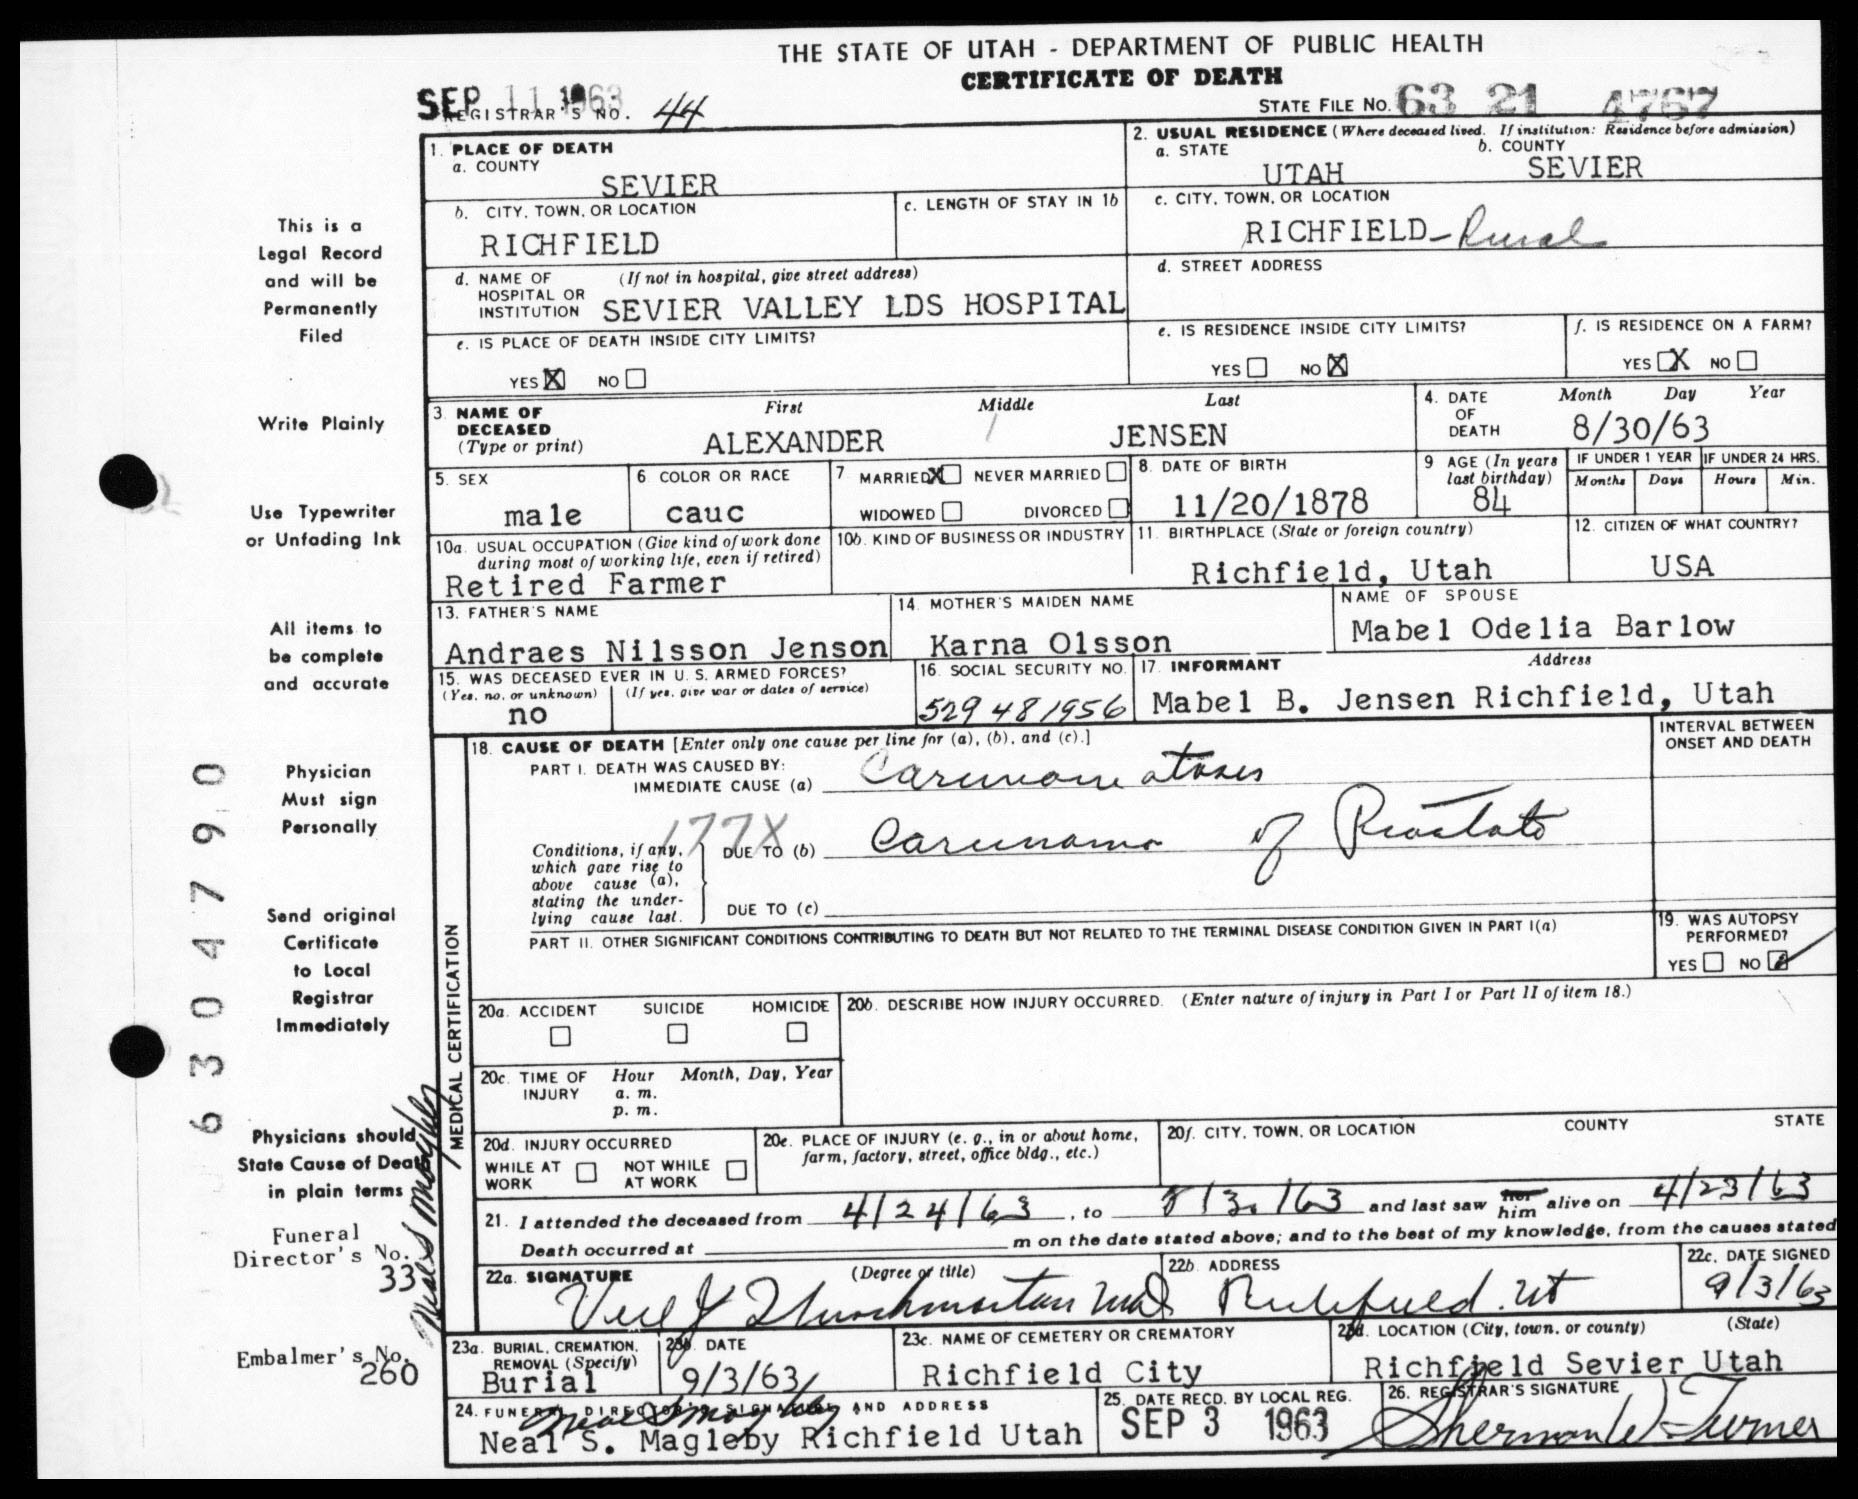 THE STATE OF UTAH - DEPARTMENT OF PUBLIC HEALTH
CERTIFICATE OF DEATH
SEP 11 1963
REGISTRAR'S NO. 44
STATE FILE NO. 63 21 4767
1. PLACE OF DEATH
a. COUNTY
SEVIER
2. USUAL RESIDENCE (Where deceased lived. If institution: Residence before admission)
a. STATE
UTAH
b. COUNTY
SEVIER
b. CITY, TOWN, OR LOCATION
RICHFIELD
c. LENGTH OF STAY IN 1b
c. CITY, TOWN, OR LOCATION
RICHFIELD-Rural
d. NAME OF HOSPITAL OR INSTITUTION
(If not in hospital, give street address)
SEVIER VALLEY LDS HOSPITAL
d. STREET ADDRESS
e. IS PLACE OF DEATH INSIDE CITY LIMITS?
YES X NO
e. IS RESIDENCE INSIDE CITY LIMITS?
YES NO X
f. IS RESIDENCE ON A FARM?
YES X NO
3. NAME OF DECEASED
(Type or print)
First Middle Last
ALEXANDER JENSEN
4. DATE OF DEATH
Month Day Year
8/30/63
5. SEX
male
6 COLOR OR RACE
cauc
7 MARRIED X NEVER MARRIED
WIDOWED DIVORCED
8. DATE OF BIRTH
11/20/1878
9 AGE (In years last birthday)
84
IF UNDER 1 YEAR
Months Days
IF UNDER 24 HRS.
Hours Min.
10a. USUAL OCCUPATION (Give kind of work done during most of working life, even if retired)
Retired Farmer
10b. KIND OF BUSINESS OR INDUSTRY
11. BIRTHPLACE (State or foreign country)
Richfield, Utah
12. CITIZEN OF WHAT COUNTRY?
USA
13. FATHER'S NAME
Andraes Nilsson Jenson
14. MOTHER'S MAIDEN NAME
Karna Olsson
NAME OF SPOUSE
Mabel Odelia Barlow
15. WAS DECEASED EVER IN U. S. ARMED FORCES?
(Yes, no, or unknown) (If yes, give war or dates of service)
no
16. SOCIAL SECURITY NO.
529 48 1956
17. INFORMANT Address
Mabel B. Jensen Richfield, Utah
MEDICAL CERTIFICATION
18. CAUSE OF DEATH [Enter only one cause per line for (a), (b), and (c).]
INTERVAL BETWEEN ONSET AND DEATH
PART I. DEATH WAS CAUSED BY:
IMMEDIATE CAUSE (a) Carcinomatosis
177X
Conditions, if any, which gave rise to above cause (a), stating the underlying cause last.
DUE TO (b) Carcinoma of Prostate
DUE TO (c)
PART II. OTHER SIGNIFICANT CONDITIONS CONTRIBUTING TO DEATH BUT NOT RELATED TO THE TERMINAL DISEASE CONDITION GIVEN IN PART I(a)
19. WAS AUTOPSY PERFORMED?
YES NO
20a. ACCIDENT SUICIDE HOMICIDE
20b. DESCRIBE HOW INJURY OCCURRED. (Enter nature of injury in Part I or Part II of item 18.)
20c. TIME OF INJURY
Hour Month, Day, Year
a. m.
p. m.
20d. INJURY OCCURRED
WHILE AT WORK NOT WHILE AT WORK
20e. PLACE OF INJURY (e. g., in or about home, farm, factory, street, office bldg., etc.)
20f. CITY, TOWN, OR LOCATION COUNTY STATE
21. I attended the deceased from 4/24/63, to 8/30/63 and last saw her him alive on 4/23/63
Death occurred at m on the date stated above; and to the best of my knowledge, from the causes stated
22a. SIGNATURE (Degree or title)
22b. ADDRESS
Richfield. Ut
22c. DATE SIGNED
9/3/63
23a. BURIAL, CREMATION, REMOVAL (Specify)
Burial
23b. DATE
9/3/63
23c. NAME OF CEMETERY OR CREMATORY
Richfield City
23d. LOCATION (City, town, or county) (State)
Richfield Sevier Utah
24. FUNERAL DIRECTOR'S SIGNATURE AND ADDRESS
Neal S. Magleby
Neal S. Magleby Richfield Utah
25. DATE RECD. BY LOCAL REG.
SEP 3 1963
26. REGISTRAR'S SIGNATURE
Sherman W Turner
This is a
Legal Record
and will be
Permanently
Filed
Write Plainly
Use Typewriter
or Unfading Ink
All items to
be complete
and accurate
Physician
Must sign
Personally
Send original
Certificate
to Local
Registrar
Immediately
Physicians should
State Cause of Death
in plain terms
Funeral
Director's No.
33
Neal S Magleby
Embalmer's No.
260
6304790